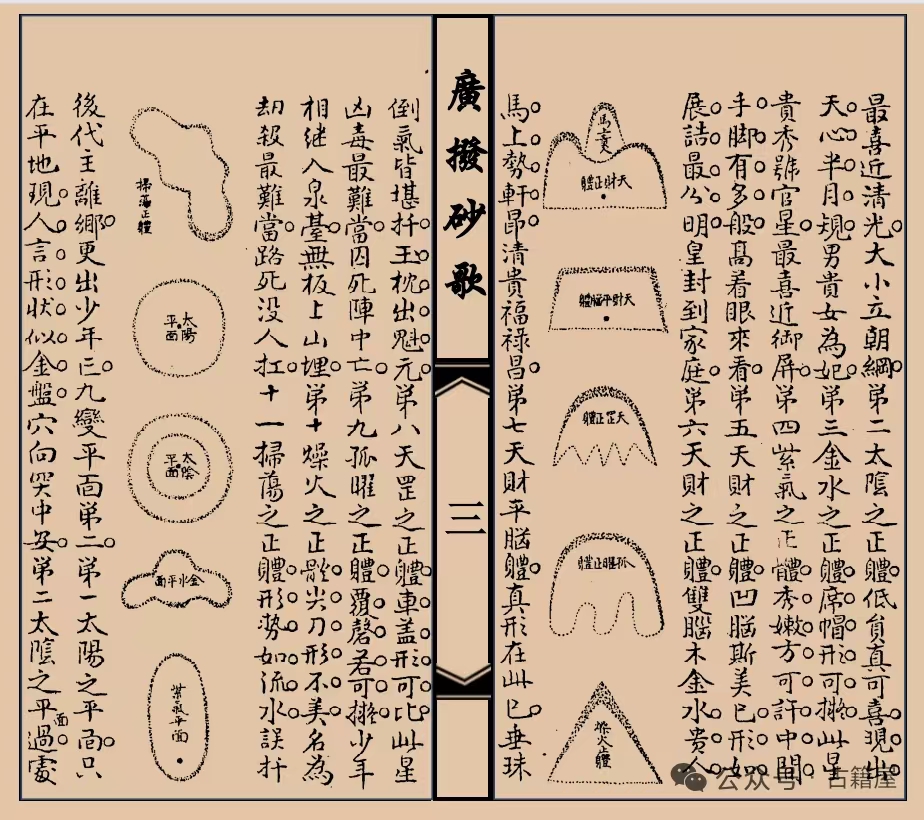 最喜近清光大小立朝綱第二太陰之正體低貟真可喜現出
天心半月䂓男貴女為妃第三金水之正體席帽形可擬此星
貴秀號官星最喜近御屏第四紫氣之正體秀嫩方可許中間
手脚有多般髙着眼來看第五天財之正體凹腦斯美已形如
展誥最分明皇封到家庭第六天財之正體雙腦木金水貴人
天財正體
天財平腦體
天罡正體
孤曜正體
燥火正體
馬上勢軒昂清貴福祿昌第七天財平腦體真形在此已垂珠
廣撥砂歌
三
倒氣皆堪扦玉枕出魁元第八天罡之正體車盖形可比此星
凶毒最難當囚死陣中亡第九孤曜之正體覆磬若可擬少年
相継入泉臺無板上山埋第十燥火之正體尖刀形不美名為
刧殺最難當路死没人扛十一掃蕩之正體形势如流水誤扦
掃蕩正體
太陽平面
太陰平面
金水平面
紫氣平面
後代主離鄉更出少年亡九變平面第二第一太陽之平面只
在平地現人言形狀似金盤穴向哭中安第二太陰之平面過處
公众号 古籍屋